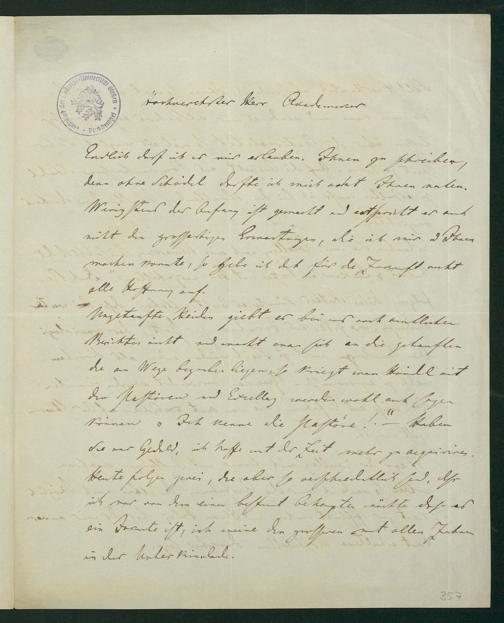 Hochverehrter Herr
Endlich darf ich es mir erlauben, Ihnen zu schreiben,
denn ohne Schädel durfte ich mich nicht Ihnen nahen.
Wenigstens der Anfang ist gemacht und entspricht er auch
nicht den großartigen Erwartungen, die ich mir u Ihnen
machen konnte, so gebe ich doch für die Zukunft nicht
alle Hoffnung auf.
Ungetaufte Heiden giebt es bei uns nach amtlichen
Berichten nicht und macht man sich an die getauften
die am Wege begraben liegen, so kriegt man Händel mit
den Pastoren und Excellenz werden wohl auch sagen
können " Ich kenne die Pastöre!" — Haben
Sie nur Geduld, ich hoffe mit der Zeit mehr zu acquiriren.
Heute folgen zwei, die aber so verschiedentlich sind, daß
ich nur von dem einen bestimmt behaupten möchte daß es
ein ist, ich meine den grösseren mit allen Zähnen
in der Unterkinnlade.
357